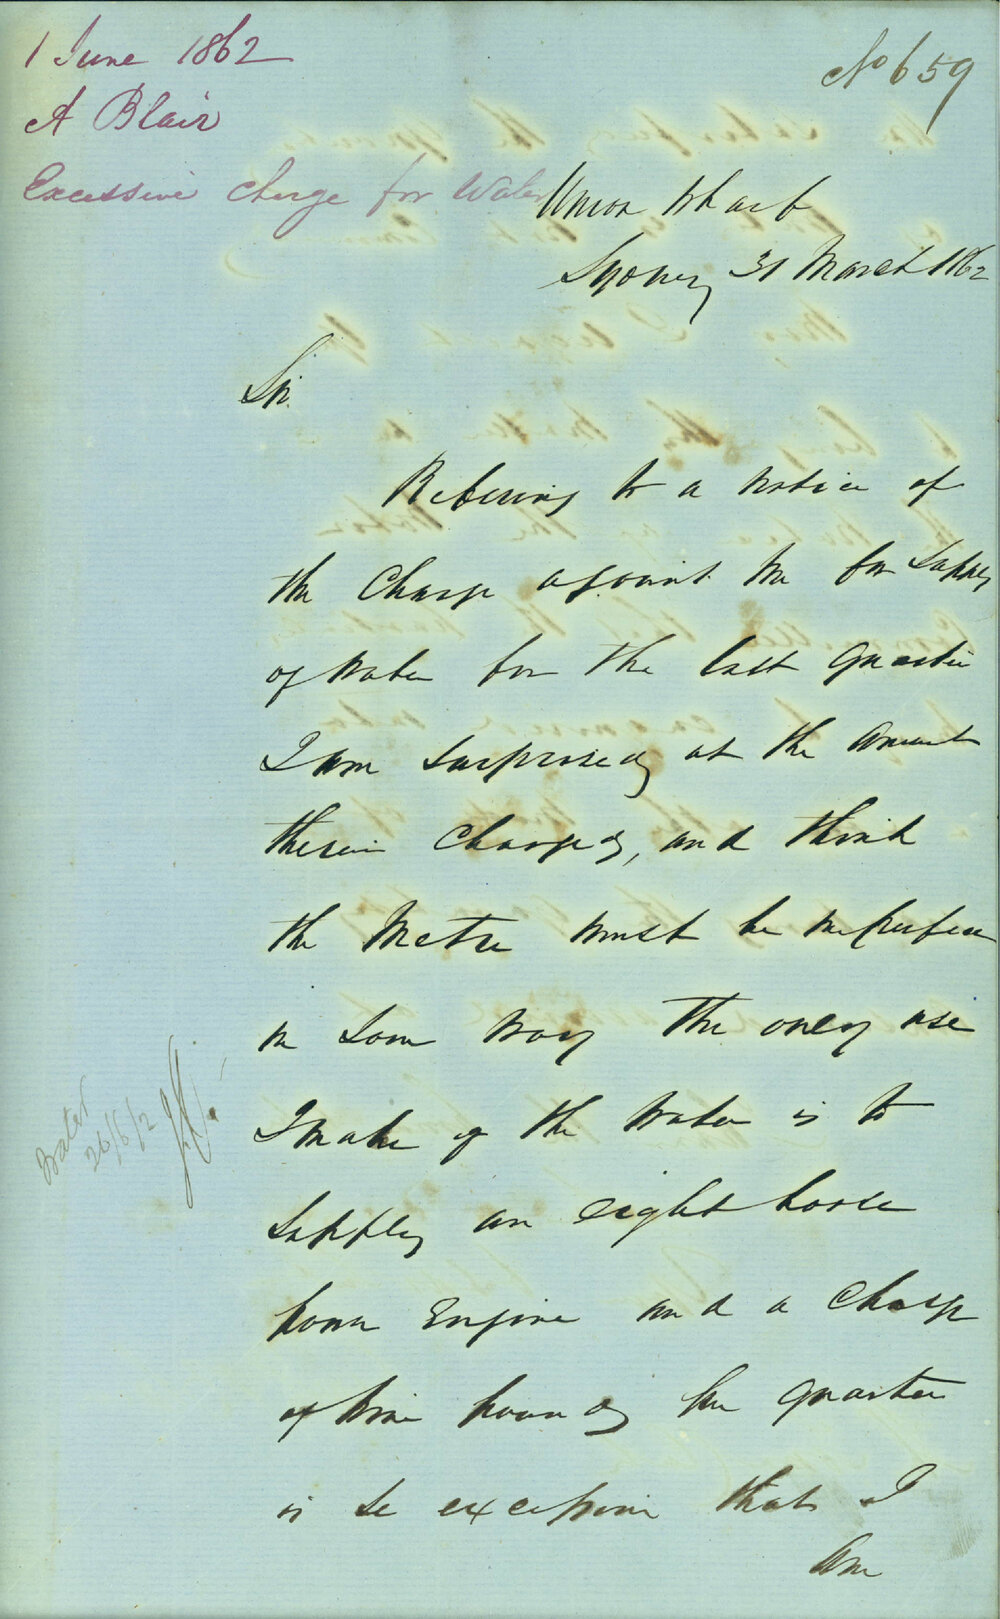 1 June 1862
A Blair
Excessive charge for Water
No 659
Union Wharf
Sydney 31 March 1862
Sir
Referring to a notice of
the Charge against me for Supply
of Water for the last quarter
I am surprised at the amount
therein Charged, and think
the Metre must be imperfect
in some way The only use
I make of the Water is to
supply an eight horse
power Engine and a Charge
of nine pounds per quarter
is so excessive that I
am
Water
26/6/2